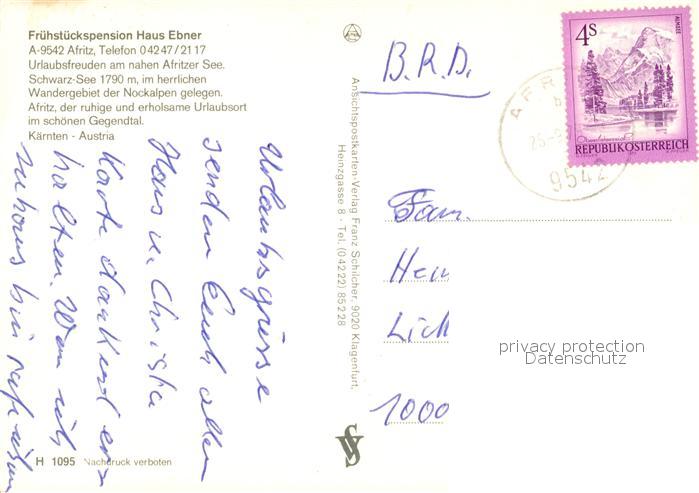 Frühstückspension Haus Ebner
A-9542 Afritz, Telefon 04247/2117
Urlaubsfreuden am nahen Afritzer See.
Schwarz-See 1790 m, im herrlichen
Wandergebiet der Nockalpen gelegen.
Afritz, der ruhige und erholsame Urlaubsort
im schönen Gegendtal.
Kärnten - Austria
Urlaubsgrüsse
senden Euch allen
Hans u. Christa
Karte dankend er=
halten. Wenn ich
zuhaus bin rufe
H 1095 Nachdruck verboten
Ansichtspostkarten-Verlag Franz Schilcher, 9020 Klagenfurt,
Heinzgasse 8 · Tel. (04222) 85228
B.R.D.
4S
ALMSEE
REPUBLIK ÖSTERREICH
9542
Fam.
Hein
Lich
1000
privacy protection
Datenschutz